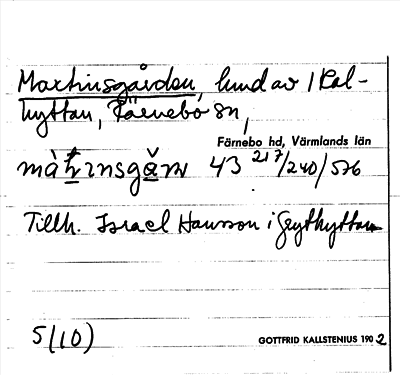 Martinsgården, lund av 1 Kal-
hyttan, Färnebo sn,
Färnebo hd, Värmlands län
43 217/240/576
Tillh. Israel Hansson i Grythyttan
5(10)
GOTTFRID KALLSTENIUS 1902